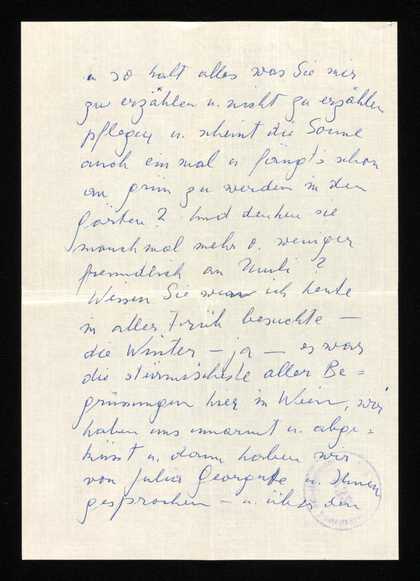 u so halt alles was Sie mir
zu erzählen u. nicht zu erzählen
pflegen u. scheint die Sonne
auch einmal u fängt's schon
an grün zu werden in den
Gärten? Und denken sie
manchmal mehr o. weniger
freundlich an
Wissen Sie wen ich heute
in aller Früh besuchte –
die Winter – ja – es war
die stürmischeste aller Be=
grüssungen hier in Wien, wir
haben uns umarmt u. abge=
küsst u. dann haben wir
von Julia Georgette u. Ihnen
gesprochen – u. über den